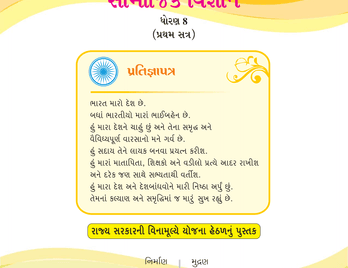 સામાજિક વિજ્ઞાન
ધોરણ 8
(પ્રથમ સત્ર)
પ્રતિજ્ઞાપત્ર
ભારત મારો દેશ છે.
બધાં ભારતીયો મારાં ભાઈબહેન છે.
હું મારા દેશને ચાહું છું અને તેના સમૃદ્ધ અને
વૈવિધ્યપૂર્ણ વારસાનો મને ગર્વ છે.
હું સદાય તેને લાયક બનવા પ્રયત્ન કરીશ.
હું મારાં માતાપિતા, શિક્ષકો અને વડીલો પ્રત્યે આદર રાખીશ
અને દરેક જણ સાથે સભ્યતાથી વર્તીશ.
હું મારા દેશ અને દેશબાંધવોને મારી નિષ્ઠા અર્પું છું.
તેમનાં કલ્યાણ અને સમૃદ્ધિમાં જ મારું સુખ રહ્યું છે.
રાજ્ય સરકારની વિનામૂલ્યે યોજના હેઠળનું પુસ્તક
નિર્માણ | મુદ્રણ